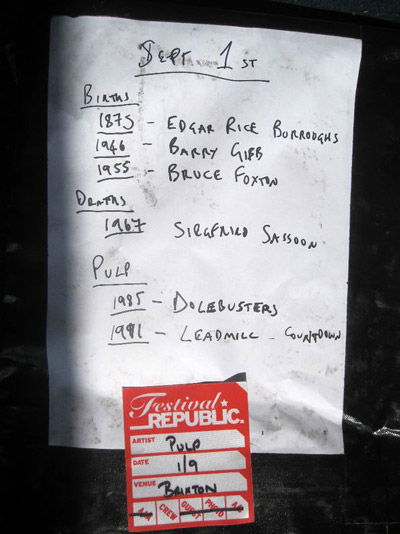 Sept 1st
Births
1875 - Edgar Rice Burroughs
1946 - Barry Gibb
1955 - Bruce Foxton
Deaths
1967 Siegfried Sassoon
Pulp
1985 - Dolebusters
1991 - Leadmill - Countdown
Festival
REPUBLIC.
ARTIST Pulp
DATE 1/9
VENUE Brixton
AAA CREW GUEST PHOTO